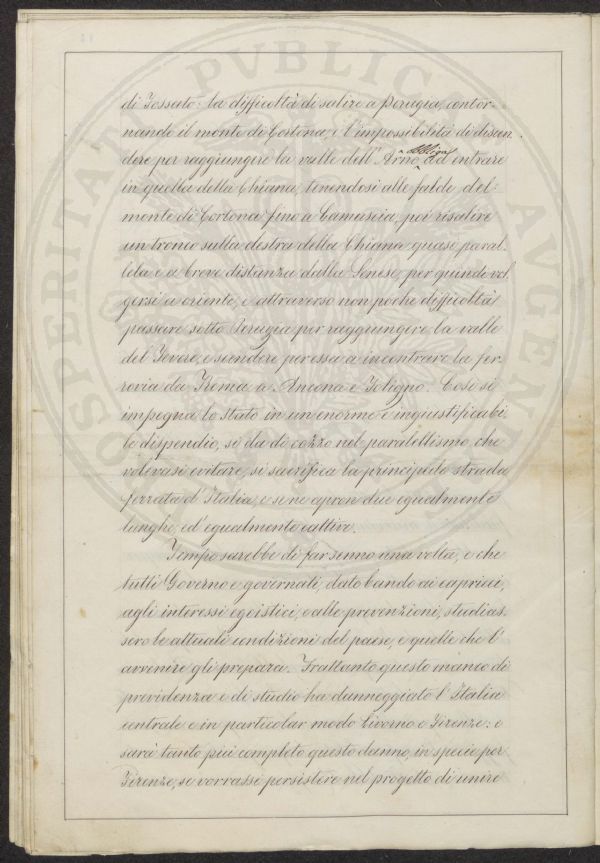 di Fossato: la difficoltà di salire a Perugia, contor-
nando il monte di Cortona, e l'impossibilità di discen-
dere per raggiungere la valle dell'Arno obbliga ad entrare
in quella della Chiana, tenendosi alle falde del
monte di Cortona fino a Camuscia, poi risalire
un tronco sulla destra della Chiana quasi paral-
lela e a breve distanza dalla Senese, per quindi vol-
gersi a oriente, e attraverso non poche difficoltà
passare sotto Perugia per raggiungere la valle
del Tevere, e scendere per essa a incontrare la fer-
rovia da Roma a Ancona e Foligno. Così si
impegna lo Stato in un enorme e ingiustificabi-
le dispendio, si dà di cozzo nel parallelismo che
volevasi evitare, si sacrifica la principale strada
ferrata d'Italia, e se ne apron due egualmente
lunghe, ed egualmente cattive.
Tempo sarebbe di far senno una volta, e che
tutti Governo e governati, dato bando ai capricci,
agli interessi egoistici, e alle prevenzioni, studias-
sero le attuali condizioni del paese, e quelle che l'
avvenire gli prepara. Frattanto questo manco di
previdenza e di studio ha danneggiato l'Italia
centrale e in particolar modo Livorno e Firenze: e
sarà tanto più completo questo danno, in specie per
Firenze, se vorrassi persistere nel progetto di unire
PROSPERITATI PVBLICAE AVGENDAE